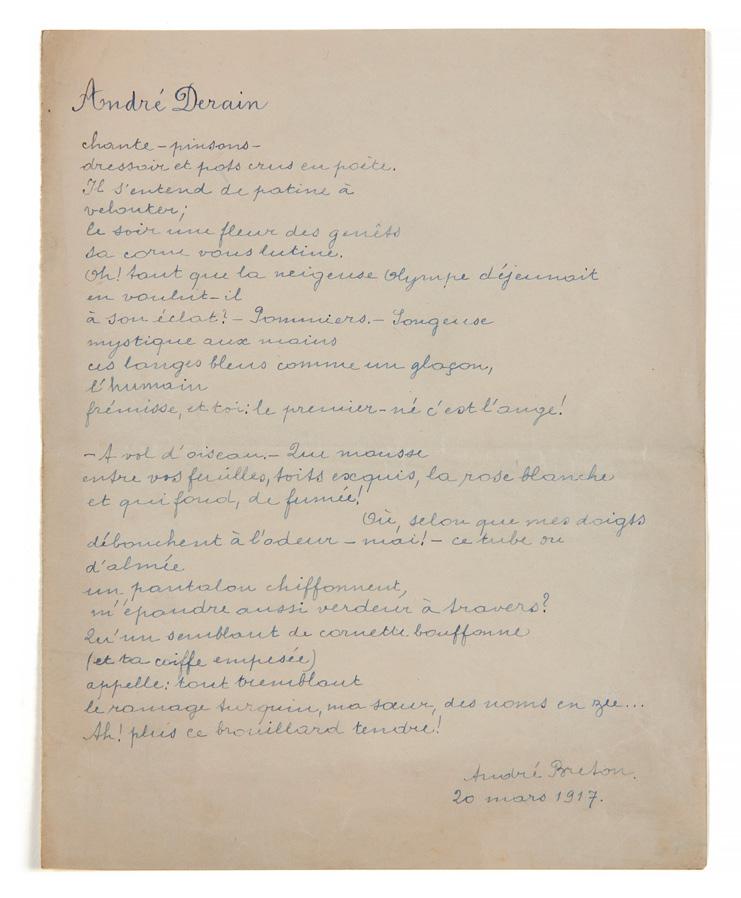 André Derain
chante-pinsons-
dressoir et pots crus en poète.
Il s'entend de patine à
velouter;
le soir une fleur des genêts
sa corne vous lutine.
Oh! tant que la neigeuse Olympe déjeunait
en voulut-il
à son éclat? - Pommiers. - Songeuse
mystique aux mains
ces langes bleus comme un glaçon,
l'humain
frémisse, et toi: le premier-né c'est l'ange!
- A vol d'oiseau. - Que mousse
entre vos feuilles, toits exquis, la rose blanche
et qui fond, de fumée!
Où, selon que mes doigts
débouchent à l'odeur - mai! - ce tube ou
d'almée
un pantalon chiffonnent,
m'épandre aussi verdeur à travers?
Qu'un semblant de cornette bouffonne
(et ta coiffe empesée)
appelle: tout tremblant
le ramage turquin, ma sœur, des noms en zée...
Ah! plus ce brouillard tendre!
André Breton.
20 mars 1917.